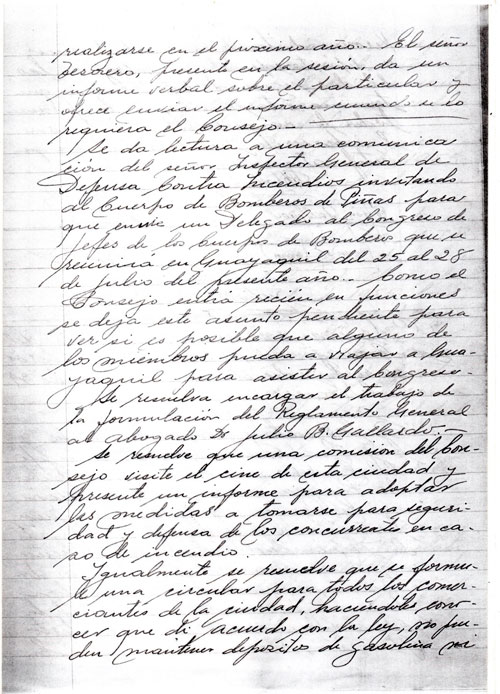 realizarse en el próximo año.. El señor
Tesorero, presente en la sesión, da un
informe verbal sobre el particular y
ofrece enviar el informe cuando se lo
requiera el Consejo.-
Se da lectura a una comunica
ción del señor Inspector General de
Defensa Contra Incendios invitando
al Cuerpo de Bomberos de Piñas para
que envíe un Delegado al Congreso de
Jefes de los Cuerpos de Bombero que se
reunirá en Guayaquil del 25 al 28
de julio del presente año.. Como el
Consejo entra recien en funciones
se deja este asunto pendiente para
ver si es posible que alguno de
los miembros pueda a viajar a Gua-
yaquil para asistir al Congreso.-
Se resuelva encargar el trabajo de
la formulación del Reglamento General
al abogado Dr Julio B. Gallardo.-
Se resuelve que una comision del Con-
sejo visite el cine de esta ciudad y
presente un informe para adoptar
las medidas a tomarse para seguri-
dad y defensa de los concurrentes en ca-
so de incendio.
Igualmente se resuelve que se formu-
le una circular para todos los comer-
ciantes de la ciudad, haciendoles cono-
cer que di acuerdo con la ley, no pue-
den mantener depositos de gasolina ni